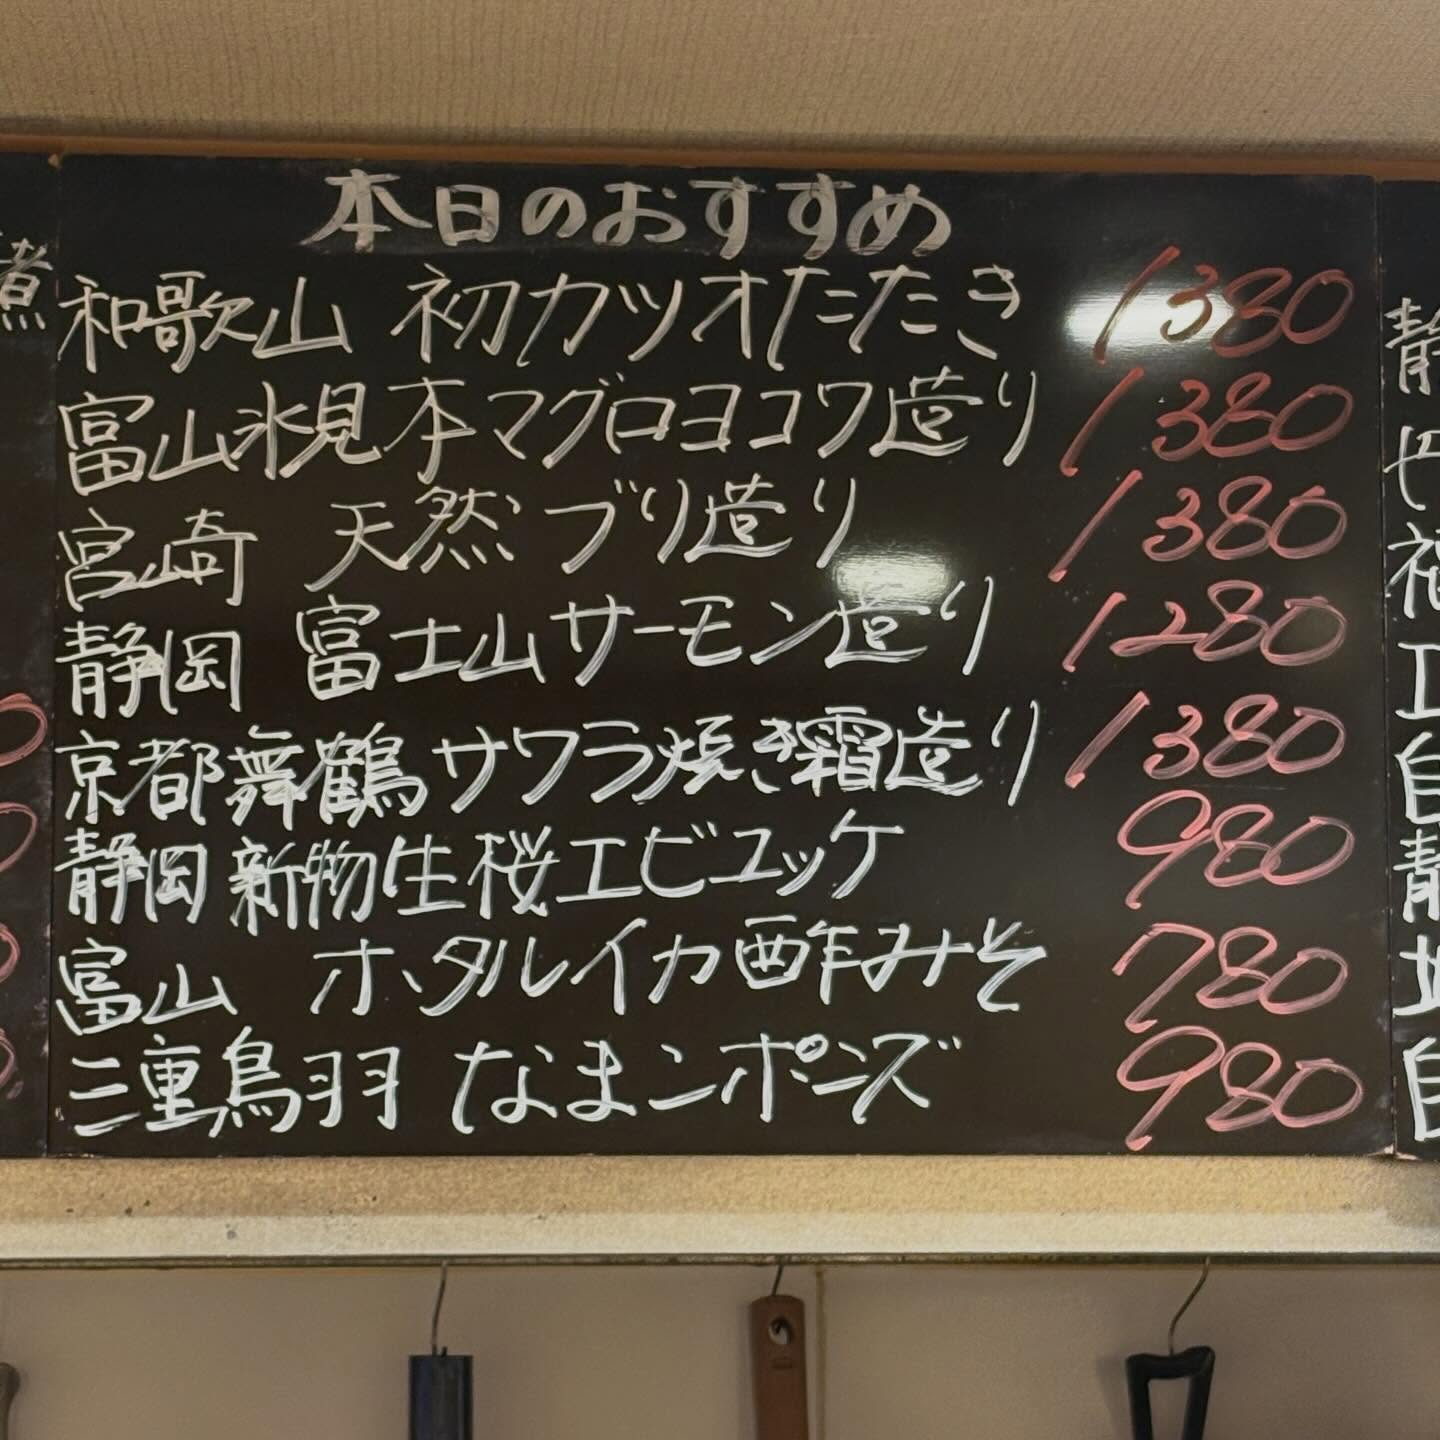 本日のおすすめ
和歌山 初カツオたたき 1380
富山氷見本マグロヨコワ造り 1380
宮崎 天然ブリ造り 1380
静岡 富士山サーモン造り 1280
京都舞鶴サワラ焼き霜造り 1380
静岡新物生桜エビユッケ 980
富山 ホタルイカ酢みそ 780
三重鳥羽 なまこポンズ 980
煮
静
福
自
静
自